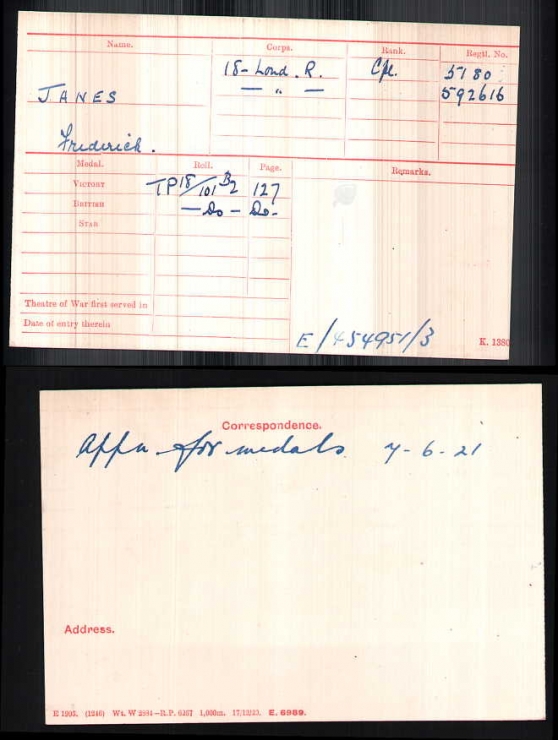 Name. Corps. Rank. Regtl. No.
18-Lond. R. Cpl. 5180
JANES — " — 592616
Frederick.
Medal. Roll. Page. Remarks.
VICTORY TP18/101 B2 127
BRITISH —Do— Do-
STAR
Theatre of War first served in
Date of entry therein
E/454951/3 K. 1380
Correspondence.
Appn for medals. 7-6-21
Address.
E 1992. (1246) Wt. W 2884—R.P. 6357 1,000m. 17/12/20. E. 6989.